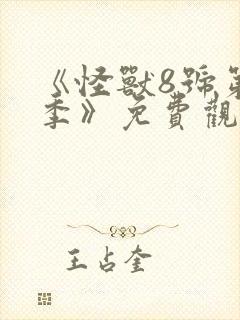 《怪獸8號第
季》免費觀
王占奎